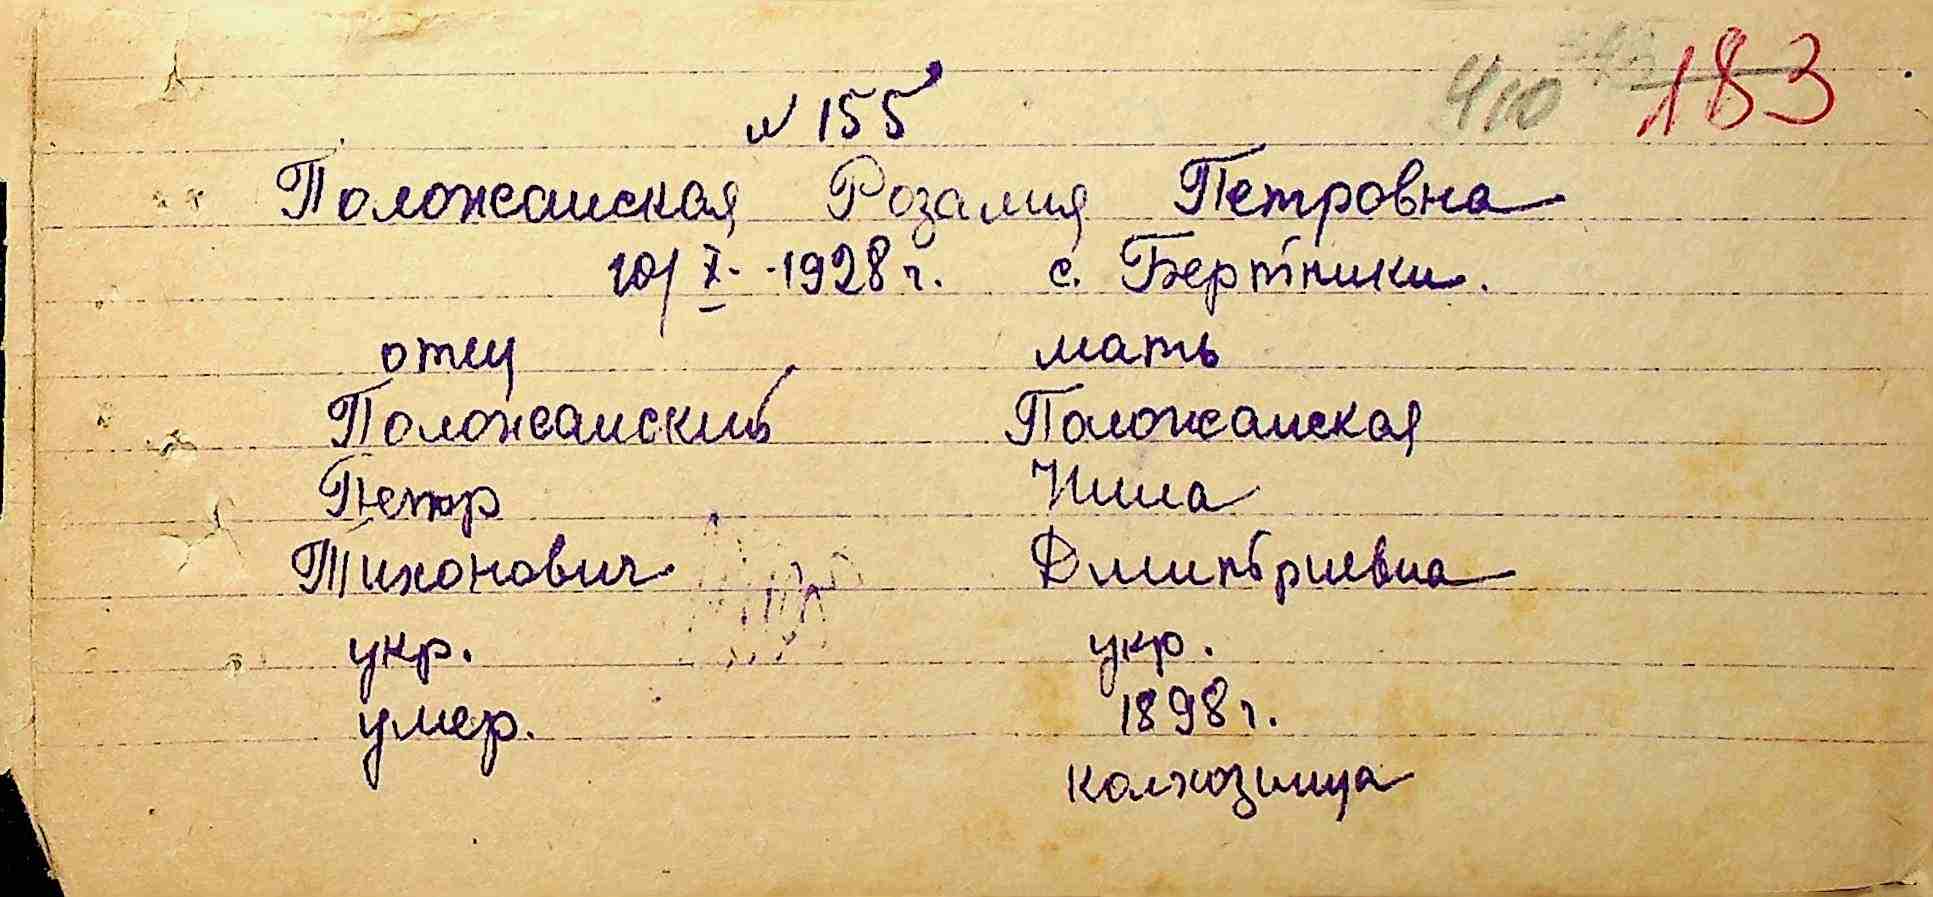 410 183
№ 155
Положанская Розалия Петровна
10/X. 1928 г. с. Бертники.
отец мать
Положанский Положанская
Петр Нина
Тихонович Дмитриевна
укр. укр.
умер. 1898 г.
колхозница